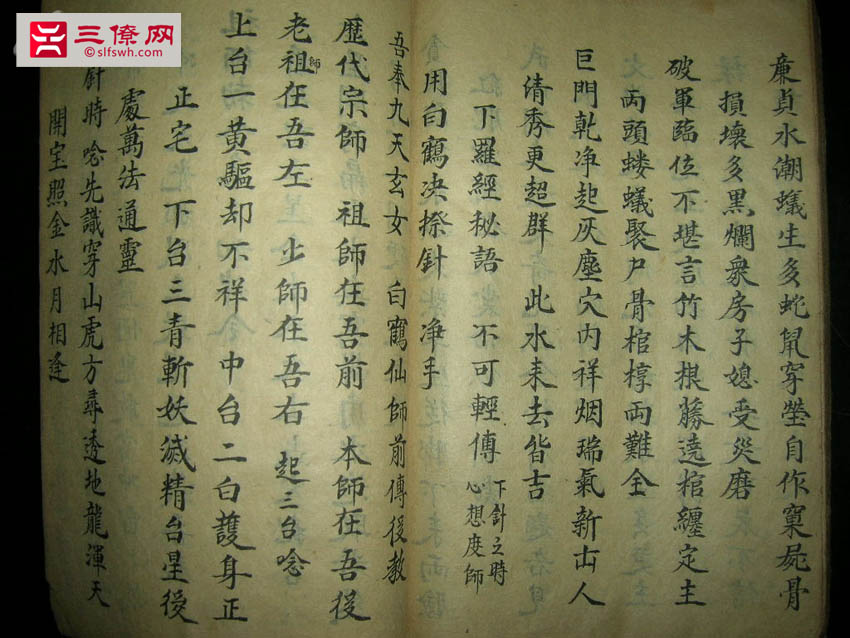 三僚网
©slfswh.com
廉貞水潮蟻生多蛇鼠穿塋自作窠屍骨
損壞多黑爛衆房子媳受災磨
破軍臨位不堪言竹木根藤遶棺纏定主
兩頭蝼蟻聚尸骨棺椁両難全
巨門乾净起灰塵穴內祥烟瑞氣新出人
清秀更超群 此水来去皆吉
下羅經秘語 不可輕傳 下針之時
心想度師
用白鶴决捺針 净手
吾奉九天玄女 白鶴仙師前傳後教
歴代宗師 祖師在吾前 本師在吾後
老祖師在吾左 少師在吾右 起三台唸
上台一黄驅却不祥中台二白護身正
正宅 下台三青斬妖滅精台星後
處萬法通靈
針時唸先識穿山虎方尋透地龍渾天
開宝照金水月相逢